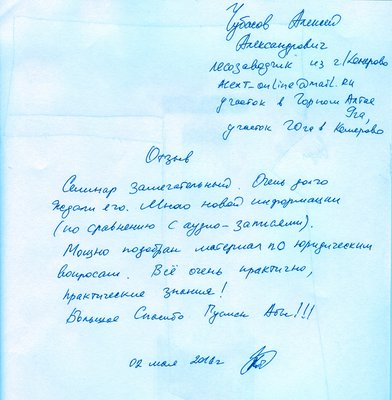 Чубасов Алексей
Александрович
лесозаводчик из г. Кемерово
alext-online@mail.ru
участок в Горном Алтае
9га,
участок 70га в Кемерово
Отзыв
Семинар замечательный. Очень долго
ждали его. Много новой информации
(по сравнению с аудио-записями).
Мощно подобран материал по юридическим
вопросам. Всё очень практично,
практические знания!
Большое Спасибо!!!
02 мая 2016г